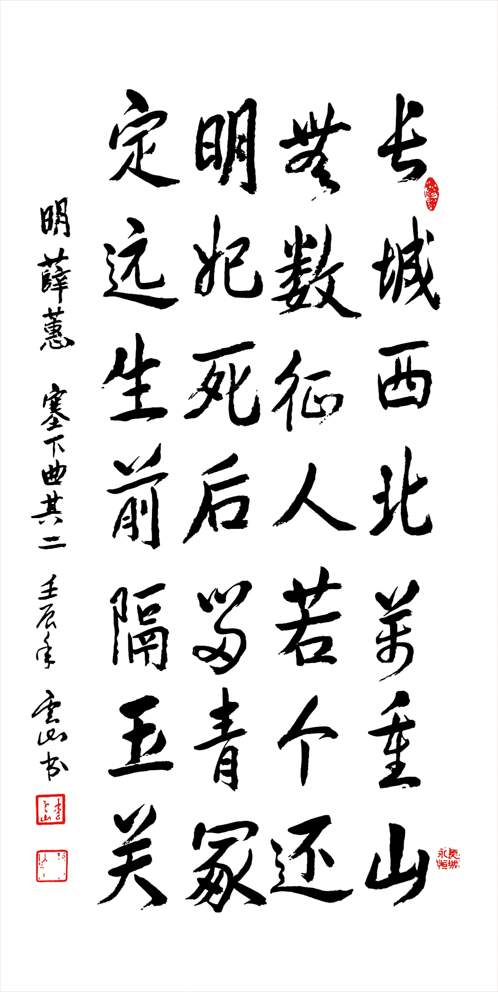 长城西北万重山
无数征人若个还
明妃死后留青冢
定远生前隔玉关
明薛蕙 塞下曲其二 壬辰年 云山书